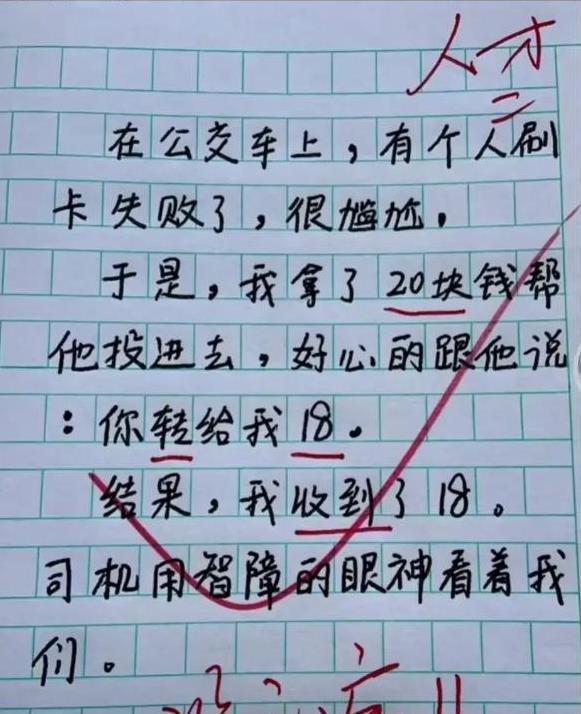 人才
在公交车上，有个人刷
卡失败了，很尴尬。
于是，我拿了20块钱帮
他投进去，好心的跟他说
：你转给我18。
结果，我收到了18。
司机用智障的眼神看着我
们。